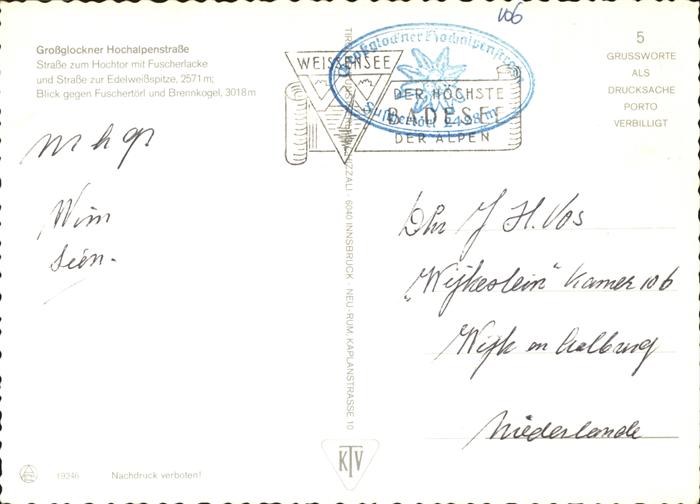 106
Großglockner Hochalpenstraße
Straße zum Hochtor mit Fuscherlacke
und Straße zur Edelweißspitze, 2571 m;
Blick gegen Fuschertörl und Brennkogel, 3018 m
m h gr
Wim
Sien.
WEISSENSEE
DER HÖCHSTE
BADESEE
DER ALPEN
Großglockner Hochalpenstraße
Fuschertörl 2428 m
5
GRUSSWORTE
ALS
DRUCKSACHE
PORTO
VERBILLIGT
6040 INNSBRUCK - NEU-RUM, KAPLANSTRASSE 10
Dhr J H. Vos
„Wijkestein" Kamer 106
Wijk en Aalburg
Niederlande
KTV
19246 Nachdruck verboten!